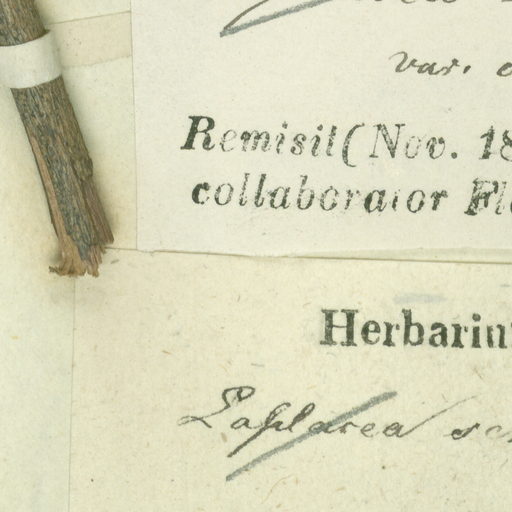 var.
Remisit (Nov. 18
collaborator Fl
Herbariu
Laplacea se